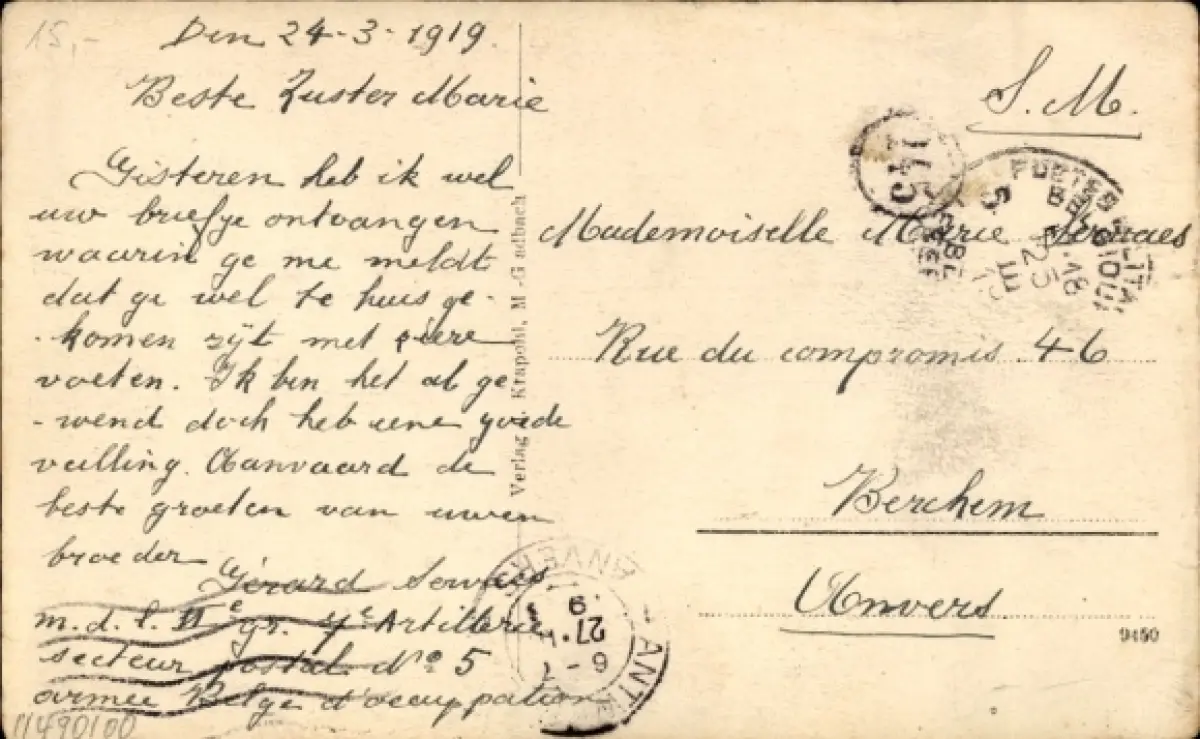 15,-
Den 24-3-1919.
Beste Zuster Marie
Gisteren heb ik wel
uw briefje ontvangen
waarin ge me meldt
dat ge wel te huis ge-
-komen zijt met
voeten. Ik bin het al ge
-wend doch heb eene goede
veilling. Aanvaard de
beste groeten van uwen
broeder
Gérard Servaes
m.d.l. II e gr. 7e Artillerie
secteur postal No 5
armée Belge d'occuppation
11490100
Verlag Krapohl, M.-Gladbach
S.M.
Mademoiselle Marie Servaes
Rue du compromis 46
Berchem
Anvers
9450
145
25 III
ANVERS
6-7
27
ANTW